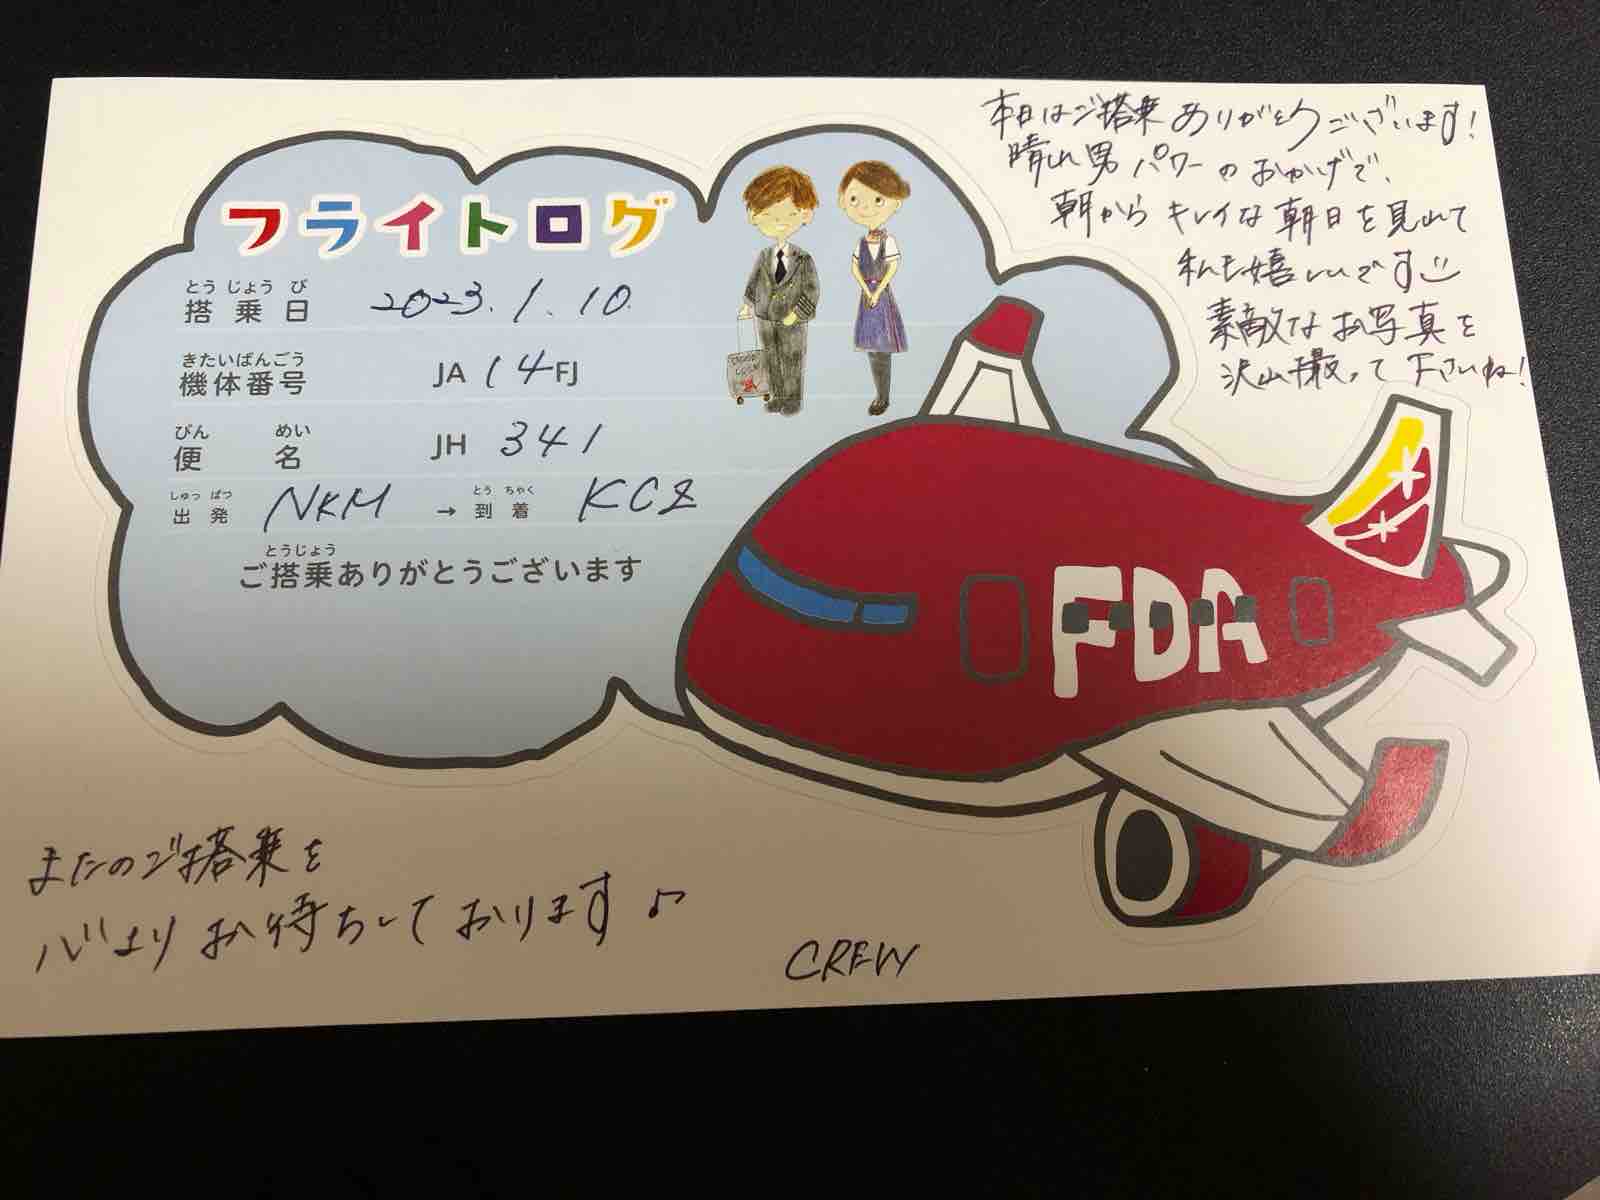 フライトログ
とうじょうび
搭乗日 2023.1.10.
きたいばんごう
機体番号 JA 14 FJ
びん めい
便名 JH 341
しゅっぱつ とうちゃく
出発 NKM → 到着 KCZ
とうじょう
ご搭乗ありがとうございます
本日はご搭乗ありがとうございます!
晴れ男パワーのおかげで、
朝からキレイな朝日を見れて
私も嬉しいです
素敵なお写真を
沢山撮って下さいね!
FDA
またのご搭乗を
心よりお待ちしております♪
CREW